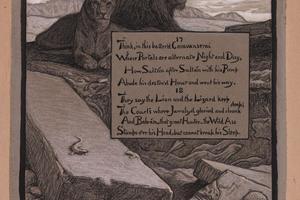 17
Think, in this batter'd Caravanserai
Whose Portals are alternate Night and Day,
How Sultán after Sultán with his Pomp
Abode his destin'd Hour and went his way.
18
They say the Lion and the Lizard keep
The Courts where Jamshyd gloried and drank deep:
And Bahrám, that great Hunter—the Wild Ass
Stamps o'er his Head, but cannot break his Sleep.